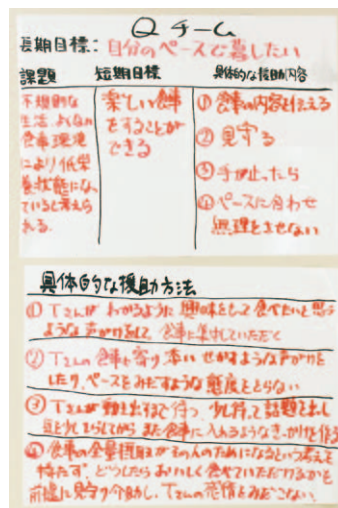 Qチーム
長期目標：自分のペースで暮したい
課題 短期目標 具体的な援助内容
不規則な
生活、よくない
食事環境
により低栄
養状態になっ
ていると考えら
れる.
楽しい食事
をすることが
できる
① 食事の内容を伝える
② 見守る
③ 手が止ったら
④ ペースに合わせ
無理をさせない
具体的な援助方法
① Tさんが わかるように 興味をもって食べたいと思う
ような声かけをして、食事に集中していただく
② Tさんの食事に寄り添い せかすような声かけを
したり、ペースをみだすような態度をとらない
③ Tさんが動き出すまで待つ、少し待って話題を出し
気を少しそらしてから また食事に入れるようなきっかけを作る
④ 食事の全量摂取がその人のためになるという考えで
待たず、どうしたら おいしく食べていただけるかを
前提に見守り介助し、Tさんの表情をみおとさない.